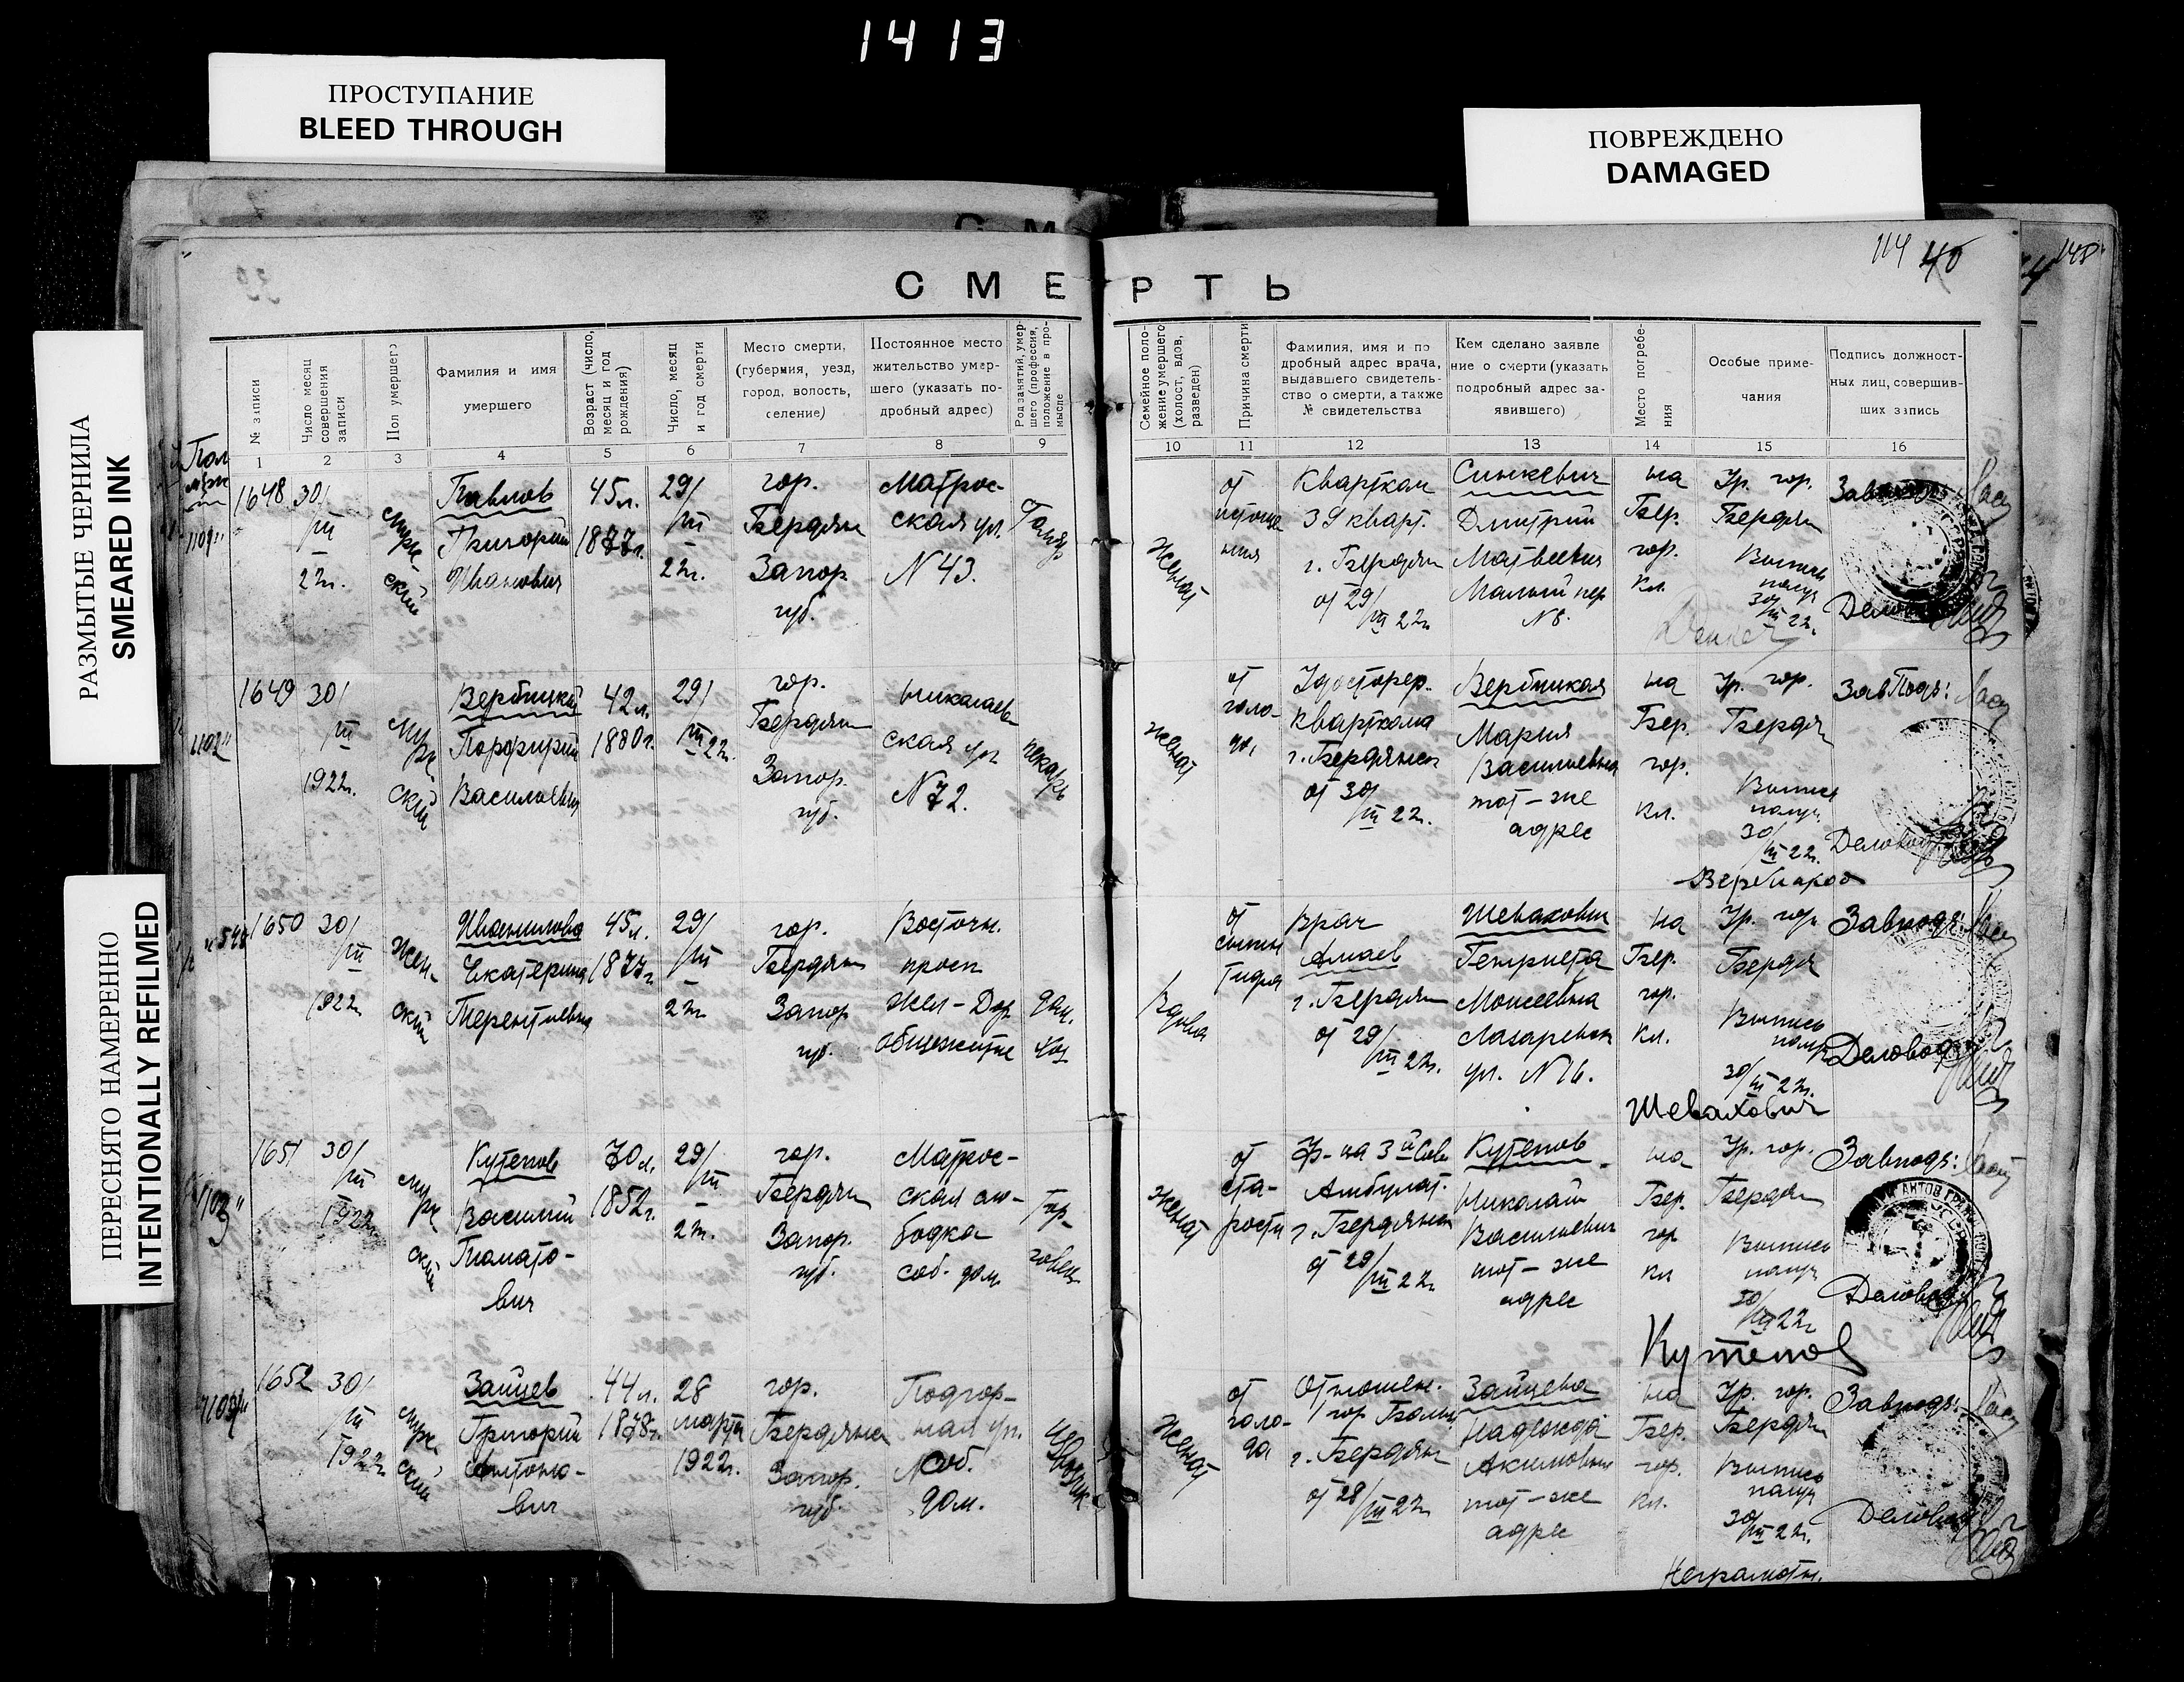 1413
ПРОСТУПАНИЕ
BLEED THROUGH
ПОВРЕЖДЕНО
DAMAGED
РАЗМЫТЫЕ ЧЕРНИЛА
SMEARED INK
ПЕРЕСНЯТО НАМЕРЕННО
INTENTIONALLY REFILMED
114 40
148
СМЕРТЬ
№ записи
Число месяц совершения записи
Пол умершего
Фамилия и имя умершего
Возраст (число, месяц и год рождения)
Число, месяц и год смерти
Место смерти, (губерния, уезд, город, волость, селение)
Постоянное место жительство умершего (указать подробный адрес)
Род занятий, умершего (профессия, положение в промысле
Семейное положение умершего (холост, вдов, разведен)
Причина смерти
Фамилия, имя и подробный адрес врача, выдавшего свидетельство о смерти, а также № свидетельства
Кем сделано заявление о смерти (указать подробный адрес заявившего)
Место погребения
Особые примечания
Подпись должностных лиц, совершивших запись
1 2 3 4 5 6 7 8 9 10 11 12 13 14 15 16
1648
30/III 22г.
Мужской
Павлов
Григорий
Иванович
45 л.
1877г.
29/III 22г.
гор.
Бердян
Запор
губ.
Матрос-
ская ул.
N 43.
Женат
от
Кварткам
39 кварт.
г. Бердян
от 29/III 22г
Синкевич
Дмитрий
Матвеевич
Малый пер
N 8.
на
Бер.
гор.
Кл.
Гр. гор.
Бердян
Выпись
получ
30/III 22г.
1649
30/III 1922г.
Мужской
Вербицкий
Порфирий
Васильевич
42 л.
1880г.
29/III 22г.
гор.
Бердян
Запор.
губ.
Николаев-
ская ул
N 72.
пекарь
Женат
от
голо-
да
Удостовер.
Кварткома
г. Бердянск
от 30/III 22г.
Вербицкая
Мария
Васильевна
тот-же
адрес
на
Бер.
гор.
Кл.
Гр. гор.
Бердян
Выпись
получ.
30/III 22г.
ЗавПодъ:
Деловод
1650
30/III 1922г
Женский
Екатерина
Терентьевна
45 л.
1877г
29/III 22г
гор.
Бердян
Запор
губ.
Восточн.
просп
Жел-Дор
общежитие
дом.
хоз
Вдова
от
сыпн
тифа
Врач
г. Бердян
от 29/III 22г.
Шевахович
Генриета
Моисеевна
Лазаревск
ул. N 16.
на
Бер.
гор.
Кл.
Гр. гор
Бердя
Выпись
получ
30/III 22г.
Шевахович
Завподъ:
Деловод
1651
30/III 1922г
Мужской
Кутепов
Василий
70 л.
1852г.
29/III 22г.
гор.
Бердян
Запор.
губ.
Матрос-
ская сло-
бодка
соб. дом
Тор-
говец
Женат
от
ста-
рости
Амбулат.
г. Бердянск
от 29/III 22г
Кутепов
Николай
Васильевич
тот-же
адрес
на
Бер.
гор
кл
Гр. гор.
Бердян
Выпись
получ
30/III 22г
Кутепов
Завподъ:
Деловод
1652
30/III 1922г
Мужской
Зайцев
Григорий
Антоно-
вич
44 л.
1878г.
28
марта
1922г.
гор.
Бердянск
Запор.
губ.
Подгор-
ная ул.
соб.
дом.
Женат
от
голо-
да
Отношен.
г. Бердян
от 28/III 22г
Зайцева
Надежда
Акимовна
тот-же
адрес
на
Бер.
гор.
Кл.
Гр. гор.
Бердян
Выпись
получ
30/III 22г.
Неграмотн.
Завподъ:
Деловод